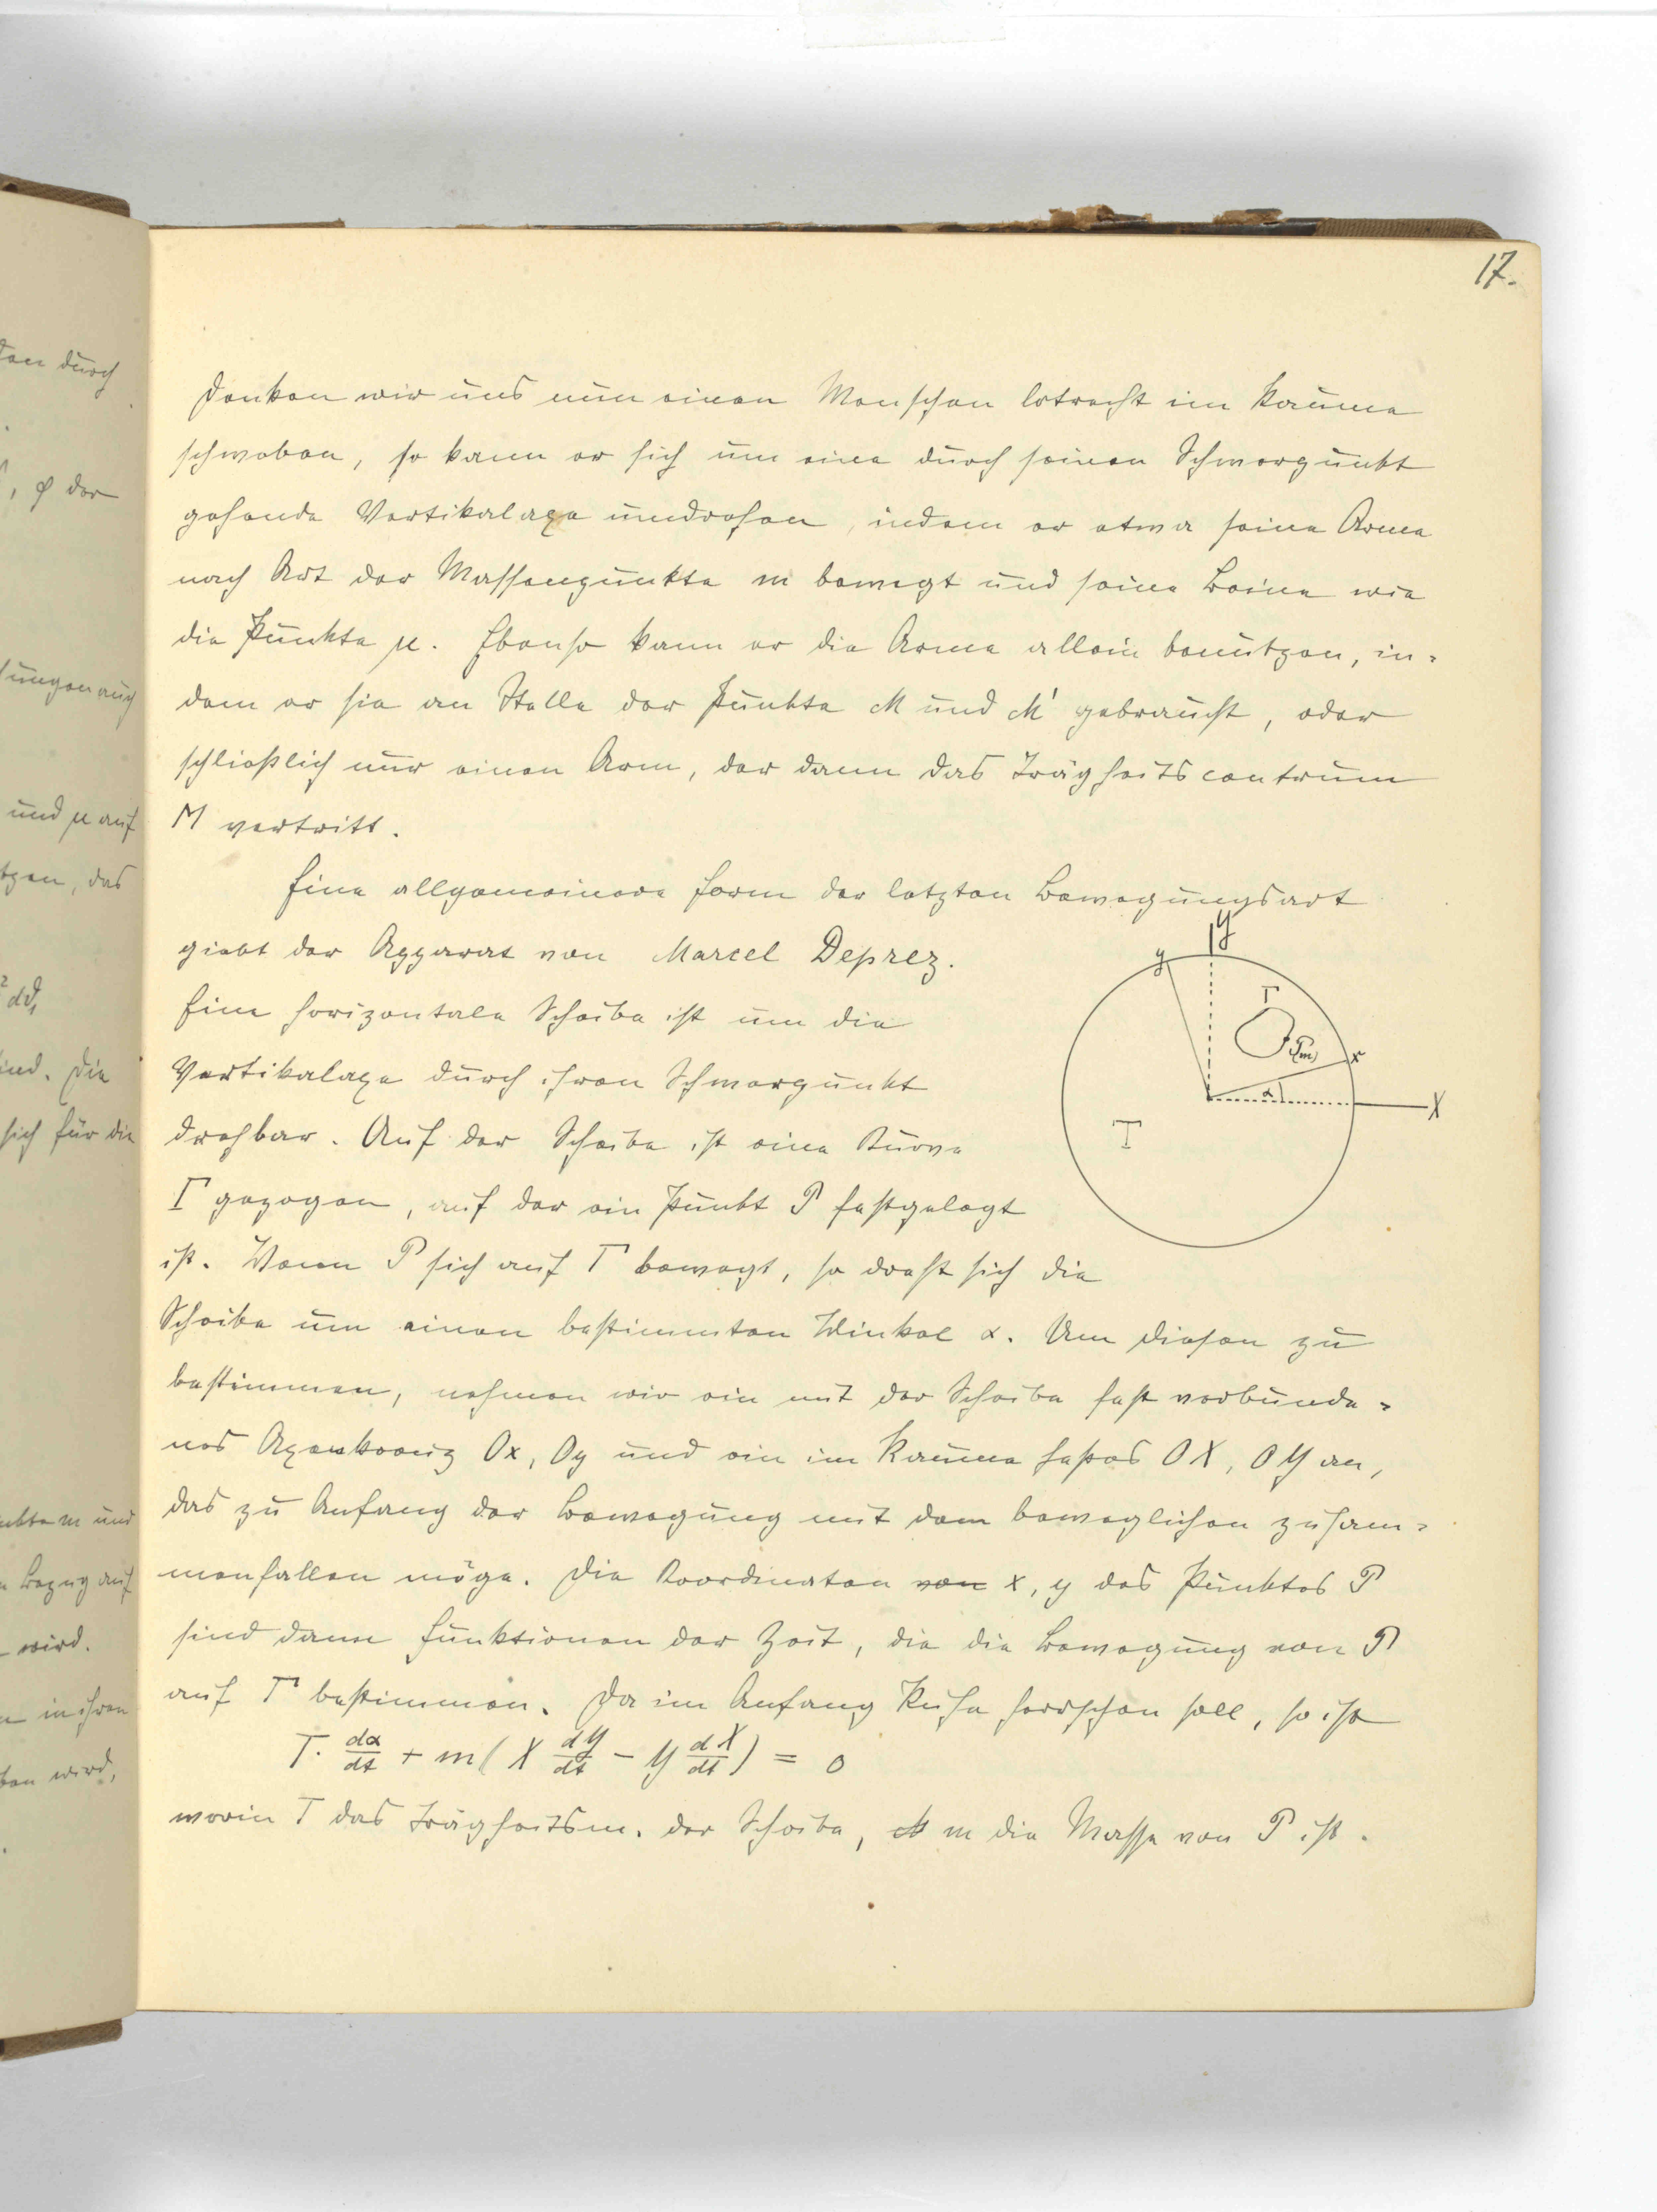 17.
Denken wir uns nun einen Menschen lotrecht im Raume
schweben, so kann er sich um eine durch seinen Schwerpunkt
gehende Vertikalaxe umdrehen, indem er etwa seine Arme
nach Art der Massenpunkte m bewegt und seine Beine wie
die Punkte μ. Ebenso kann er die Arme allein benützen, in-
dem er sie an Stelle der Punkte M und M' gebraucht, oder
schließlich nur einen Arm, der dann das Trägheitscentrum
M vertritt.
Eine allgemeinere Form der letzten Bewegungsart
giebt der Apparat von Marcel Deprez.
Eine horizontale Scheibe ist um die
Vertikalaxe durch ihren Schwerpunkt
drehbar. Auf der Scheibe ist eine Kurve
Γ gezogen, auf der ein Punkt P festgelegt
ist. Wenn P sich auf Γ bewegt, so dreht sich die
Scheibe um einen bestimmten Winkel α. Um diesen zu
bestimmen, nehmen wir ein mit der Scheibe fest verbunde-
nes Axenkreuz Ox, Oy und ein im Raume festes OX, OY an,
das zu Anfang der Bewegung mit dem beweglichen zusam-
menfallen möge. Die Koordinaten von x, y des Punktes P
sind dann Funktionen der Zeit, die die Bewegung von P
auf Γ bestimmen. Da im Anfang Ruhe herrschen soll, so ist
T. dα/dt + m(X dY/dt - Y dX/dt) = 0
worin T das Trägheitsm. der Scheibe, m die Masse von P ist.
Y
y
Γ
P(m)
x
α
X
T
den durch
, φ der
und μ auf
tzen, das
² dϑ₁
ind. Die
sich für die
nkte m und
n Bezug auf
wird.
n in ihren
ben wird,